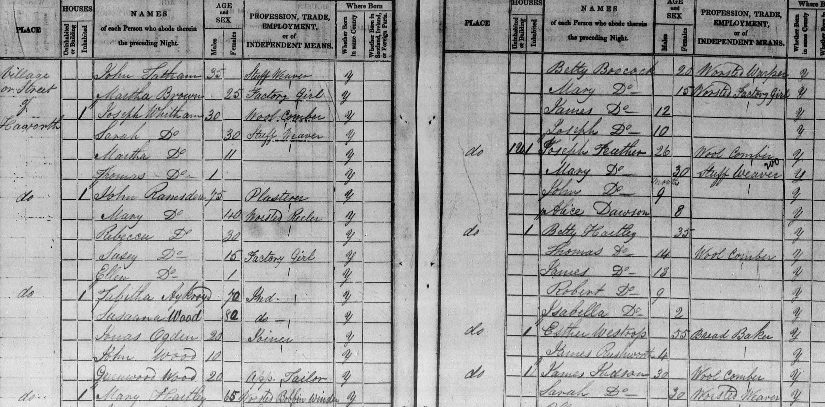 PLACE HOUSES Uninhabited or Building Inhabited NAMES of each Person who abode therein the preceding Night. AGE and SEX Males Females PROFESSION, TRADE, EMPLOYMENT, or of INDEPENDENT MEANS. Where Born Whether Born in same County Whether Born in Scotland, Ireland, or Foreign Parts.
John Tatham 35 Stuff Weaver y
Village or Street of Haworth
Martha Brown 25 Factory Girl y
1 Joseph Whitham 30 Wool Comber y
Sarah Do 30 Stuff Weaver y
Martha Do 11 y
Thomas Do 1 y
do 1 John Ramsden 75 Plasterer y
Mary Do 40 Worsted Reeler y
Rebecca Do 30 y
Susey Do 15 Factory Girl y
Ellen Do 1 y
do 1 Tabitha Aykroyd 70 Ind. y
Susanna Wood 80 do y
Jonas Ogden 20 Joiner y
John Wood 10 y
Greenwood Wood 20 App. Tailor y
do 1 Mary Hartley 65 Worsted Bobbin Winder y
PLACE HOUSES Uninhabited or Building Inhabited NAMES of each Person who abode therein the preceding Night. AGE and SEX Males Females PROFESSION, TRADE, EMPLOYMENT, or of INDEPENDENT MEANS. Where Born Whether Born in same County
Betty Boocock 20 Worsted y
Mary Do 15 Worsted Factory Girl y
James Do 12 y
Joseph Do 10 y
do 1 Joseph Feather 26 Wool Comber y
Mary Do 30 Stuff Weaver y
John Do months 9 y
Alice Dawson 8 y
do 1 Betty Hartley 35 y
Thomas Do 14 Wool Comber y
James Do 13 y
Robert Do 9 y
Isabella Do 2 y
do 1 Esther Westrop 55 Bread Baker y
James Rushworth 4 y
do 1 James Hudson 30 Wool Comber y
Sarah Do 30 Worsted Weaver y